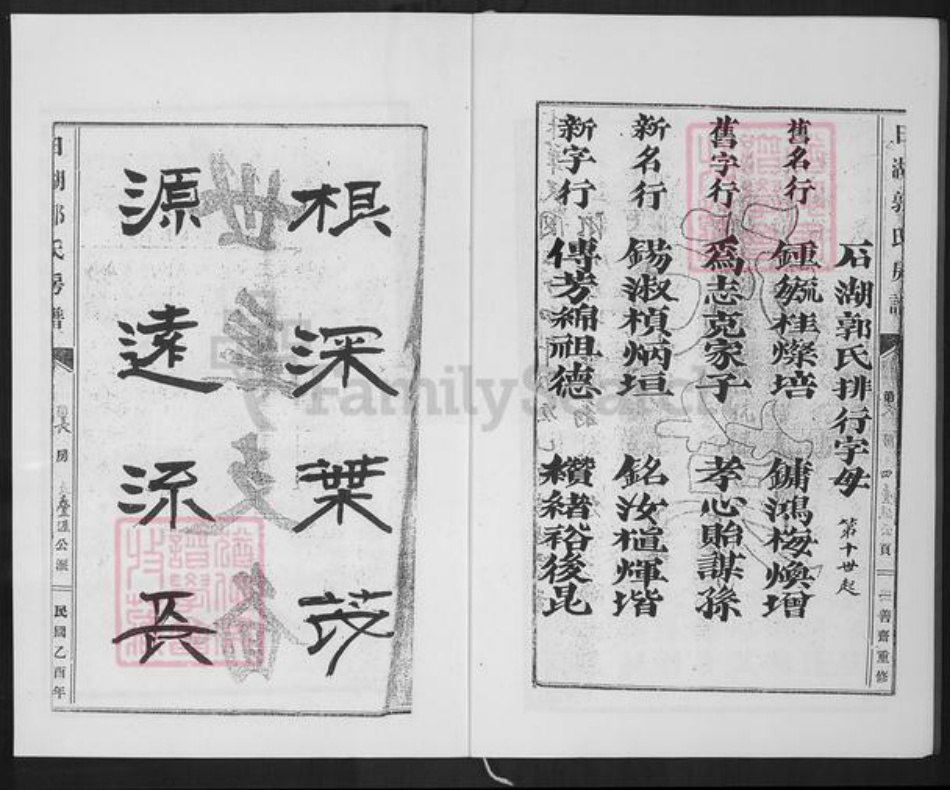 石湖郭氏排行字母 第十世起
舊名行 鍾毓桂燦培 鏞鴻梅煥增
舊字行 爲志克家子 孝心貽謀孫
新名行 錫淑楨炳垣 銘汝楦煇堦
新字行 傳芳綿祖德 纘緒裕後昆
善齋重修
根深葉茂
源遠流長
湖郭氏房譜
長房
公派
民國乙酉年
FamilySearch